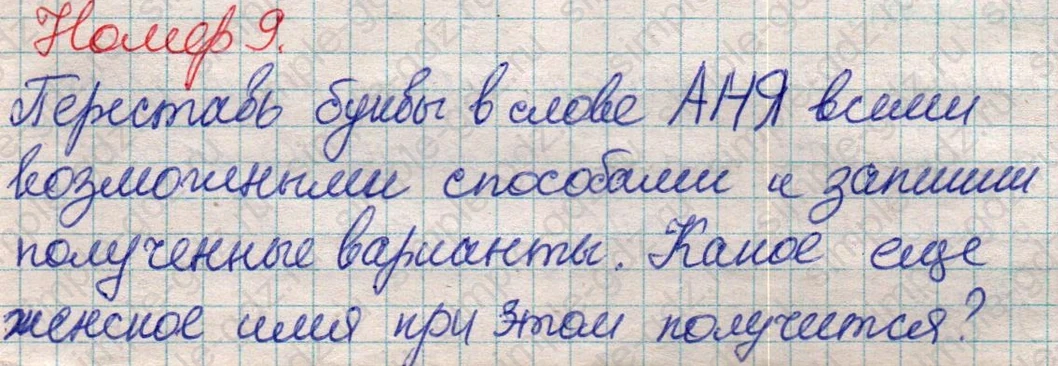 Номер 9.
Переставь буквы в слове АНЯ всеми
возможными способами и запиши
полученные варианты. Какое еще
женское имя при этом получится?